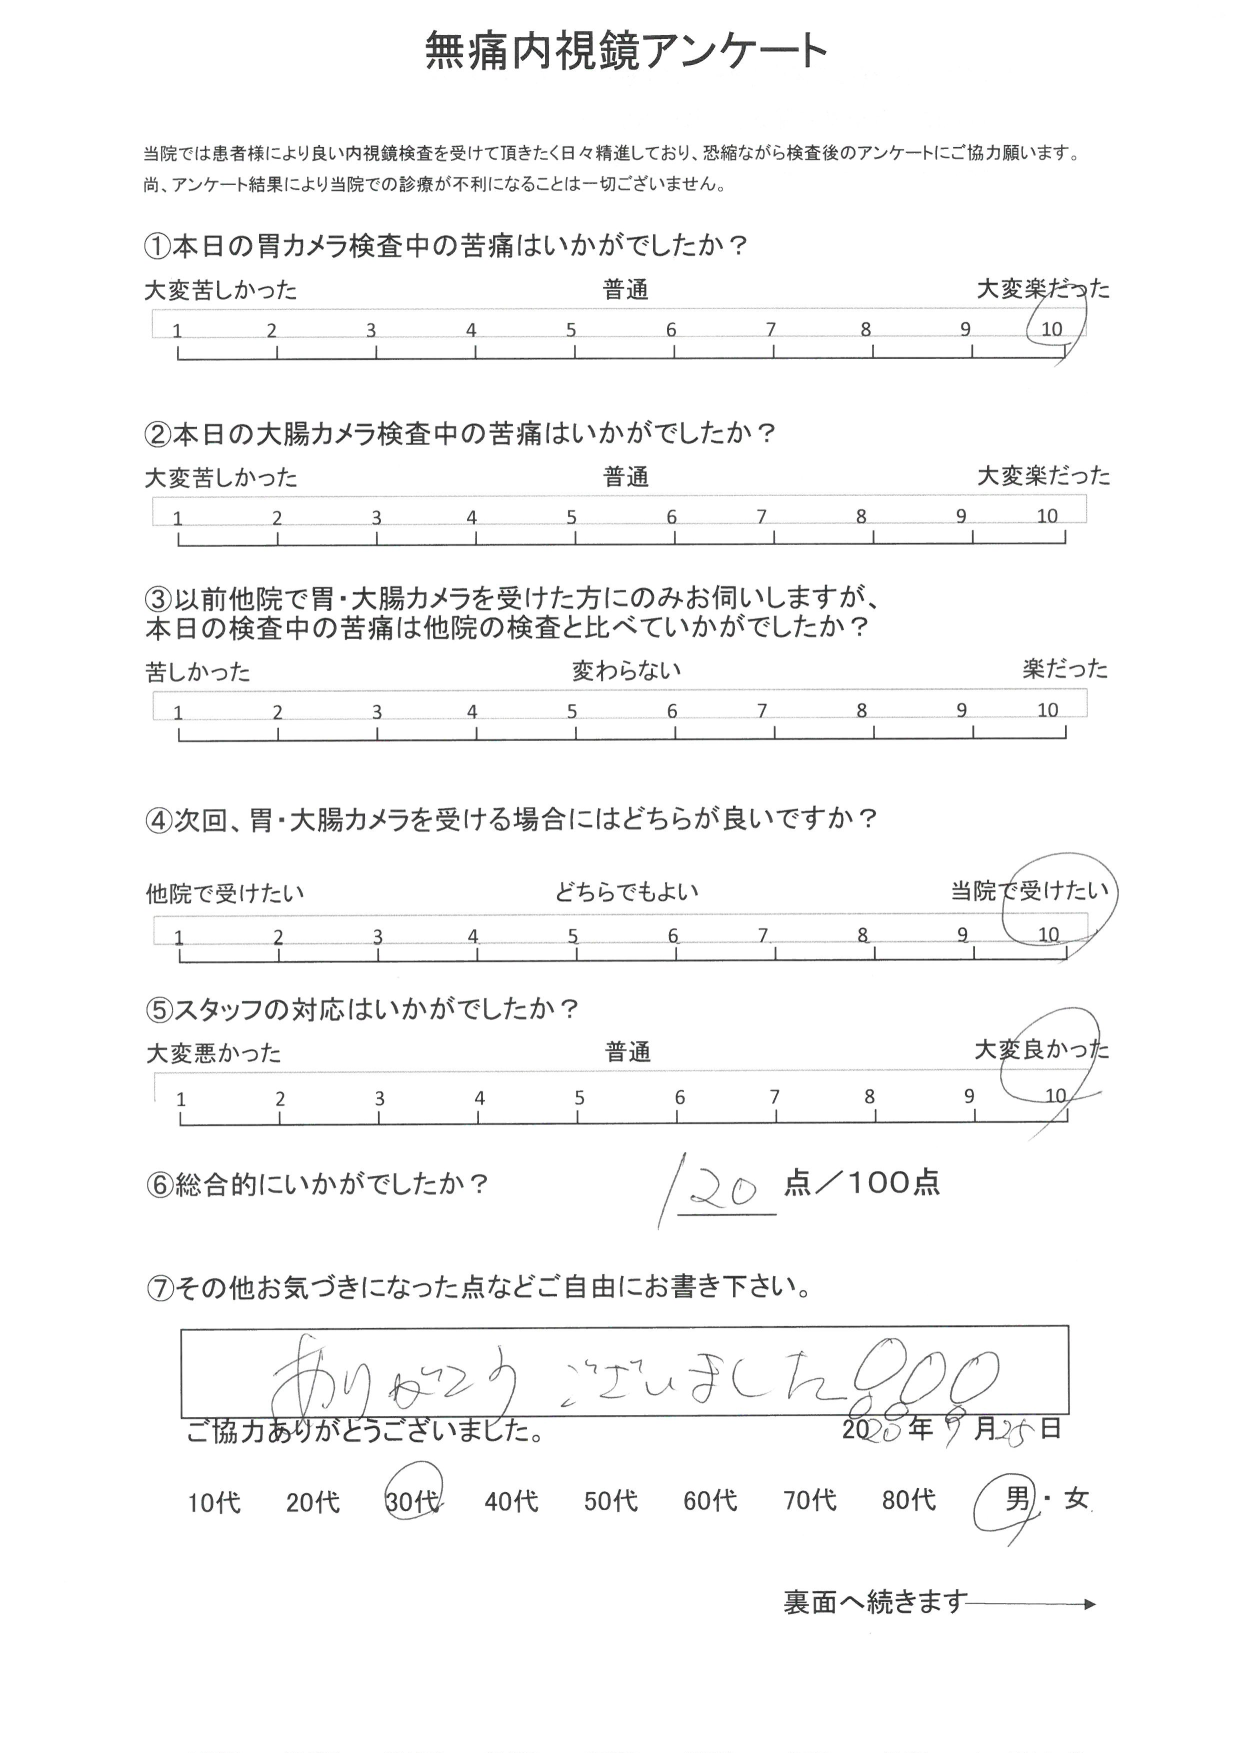 無痛内視鏡アンケート
当院では患者様により良い内視鏡検査を受けて頂きたく日々精進しており、恐縮ながら検査後のアンケートにご協力願います。
尚、アンケート結果により当院での診療が不利になることは一切ございません。
①本日の胃カメラ検査中の苦痛はいかがでしたか？
大変苦しかった 普通 大変楽だった
1 2 3 4 5 6 7 8 9 10
②本日の大腸カメラ検査中の苦痛はいかがでしたか？
大変苦しかった 普通 大変楽だった
1 2 3 4 5 6 7 8 9 10
③以前他院で胃・大腸カメラを受けた方にのみお伺いしますが、
本日の検査中の苦痛は他院の検査と比べていかがでしたか？
苦しかった 変わらない 楽だった
1 2 3 4 5 6 7 8 9 10
④次回、胃・大腸カメラを受ける場合にはどちらが良いですか？
他院で受けたい どちらでもよい 当院で受けたい
1 2 3 4 5 6 7 8 9 10
⑤スタッフの対応はいかがでしたか？
大変悪かった 普通 大変良かった
1 2 3 4 5 6 7 8 9 10
⑥総合的にいかがでしたか？ 120 点／100点
⑦その他お気づきになった点などご自由にお書き下さい。
ありがとうございました!!!
ご協力ありがとうございました。 2020年9月25日
10代 20代 30代 40代 50代 60代 70代 80代 男・女
裏面へ続きます